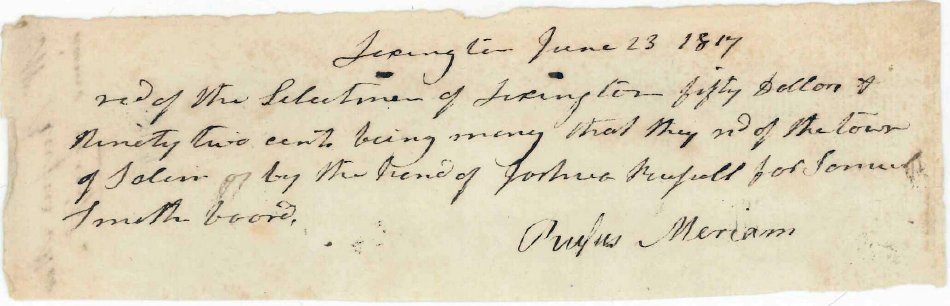 Lexington June 23 1817
recd of the Selectmen of Lexington fifty Dollors &
Ninety two cents being money that they recd of the town
of Salem by the hand of Joshua Russell for Samuel
Smiths board.
Rufus Meriam